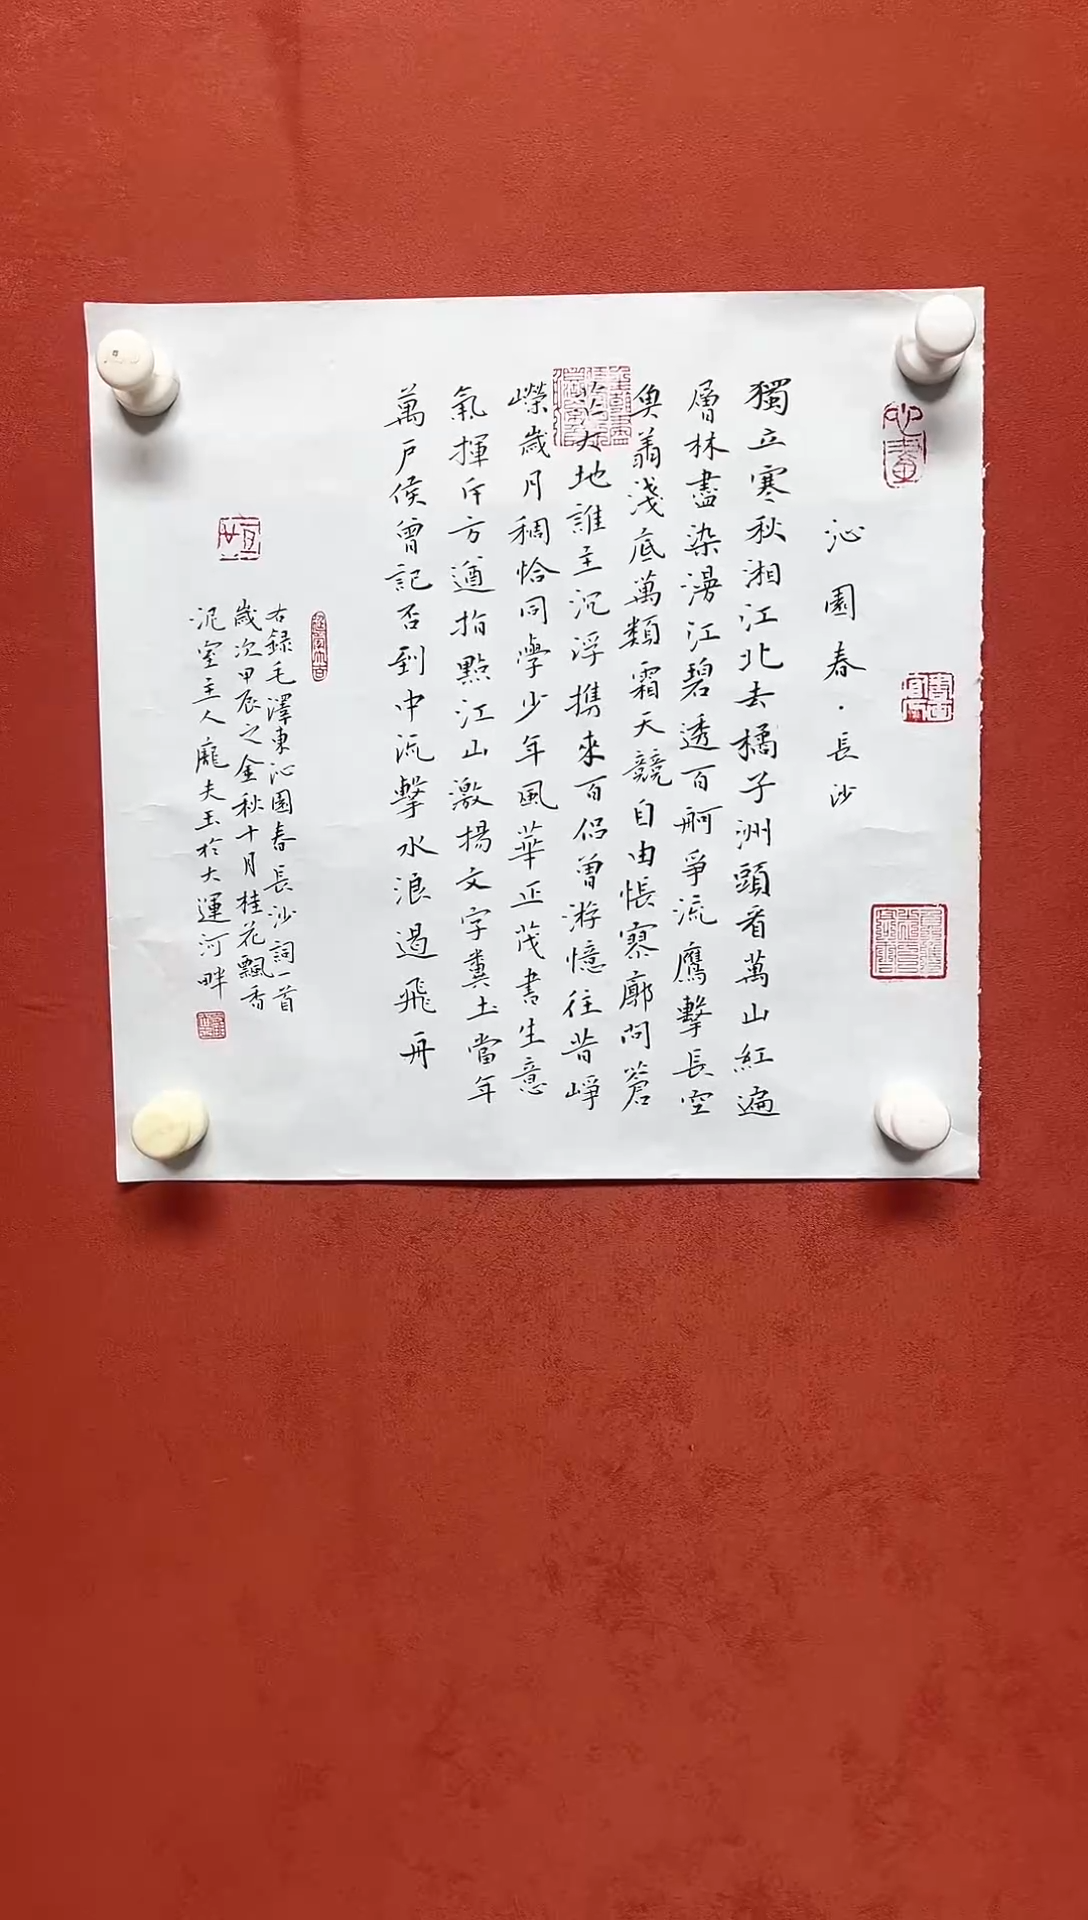 沁園春·長沙
獨立寒秋湘江北去橘子洲頭看萬山紅遍
層林盡染漫江碧透百舸爭流鷹擊長空
魚翔淺底萬類霜天競自由悵寥廓問蒼
茫大地誰主沉浮攜來百侶曾游憶往昔崢
嶸歲月稠恰同學少年風華正茂書生意
氣揮斥方遒指點江山激揚文字糞土當年
萬戶侯曾記否到中流擊水浪遏飛舟
右録毛澤東沁園春長沙詞一首
歲次甲辰之金秋十月桂花飄香
泥室主人龐夫玉於大運河畔